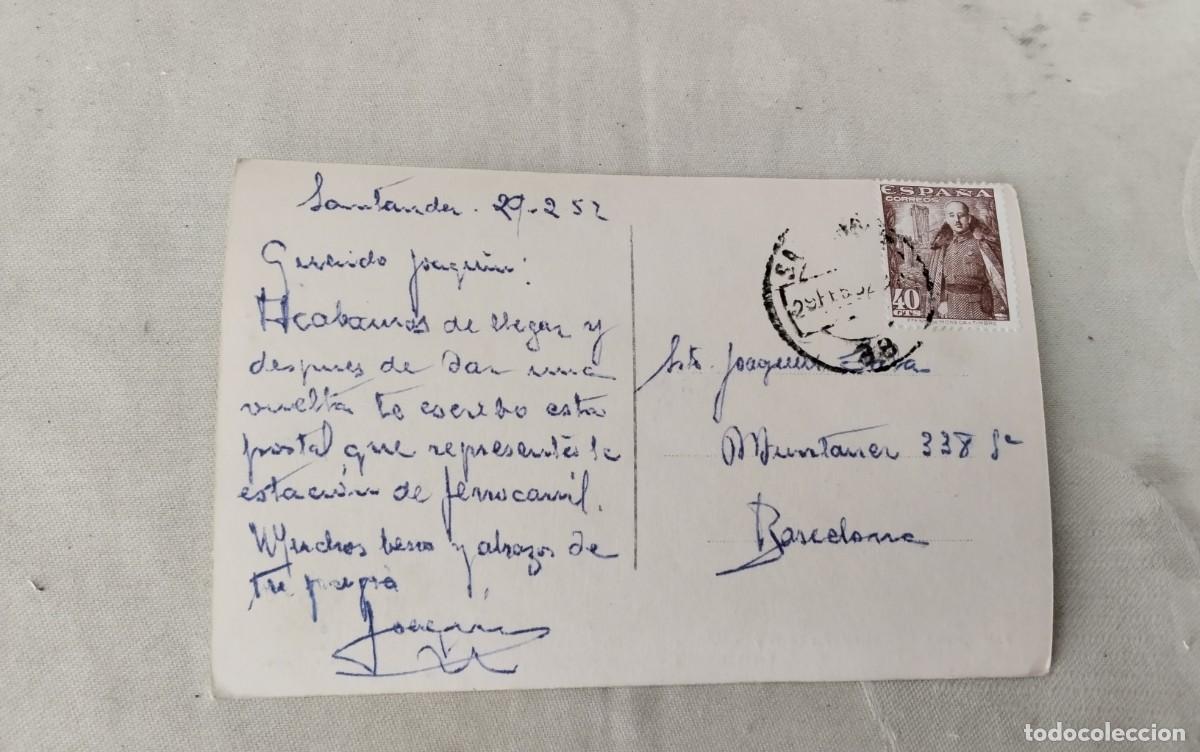 Santander. 29-2 52
Querido Joaquín:
Acabamos de llegar y
despues de dar una
vuelta te escribo esta
postal que representa la
estación de ferrocarril.
Muchos besos y abrazos de
tu papá
Joaquín
ESPAÑA
CORREOS
40
CTS
29 FEB 52
88
Srto. Joaquin
Muntaner 338
Barcelona
todocoleccion